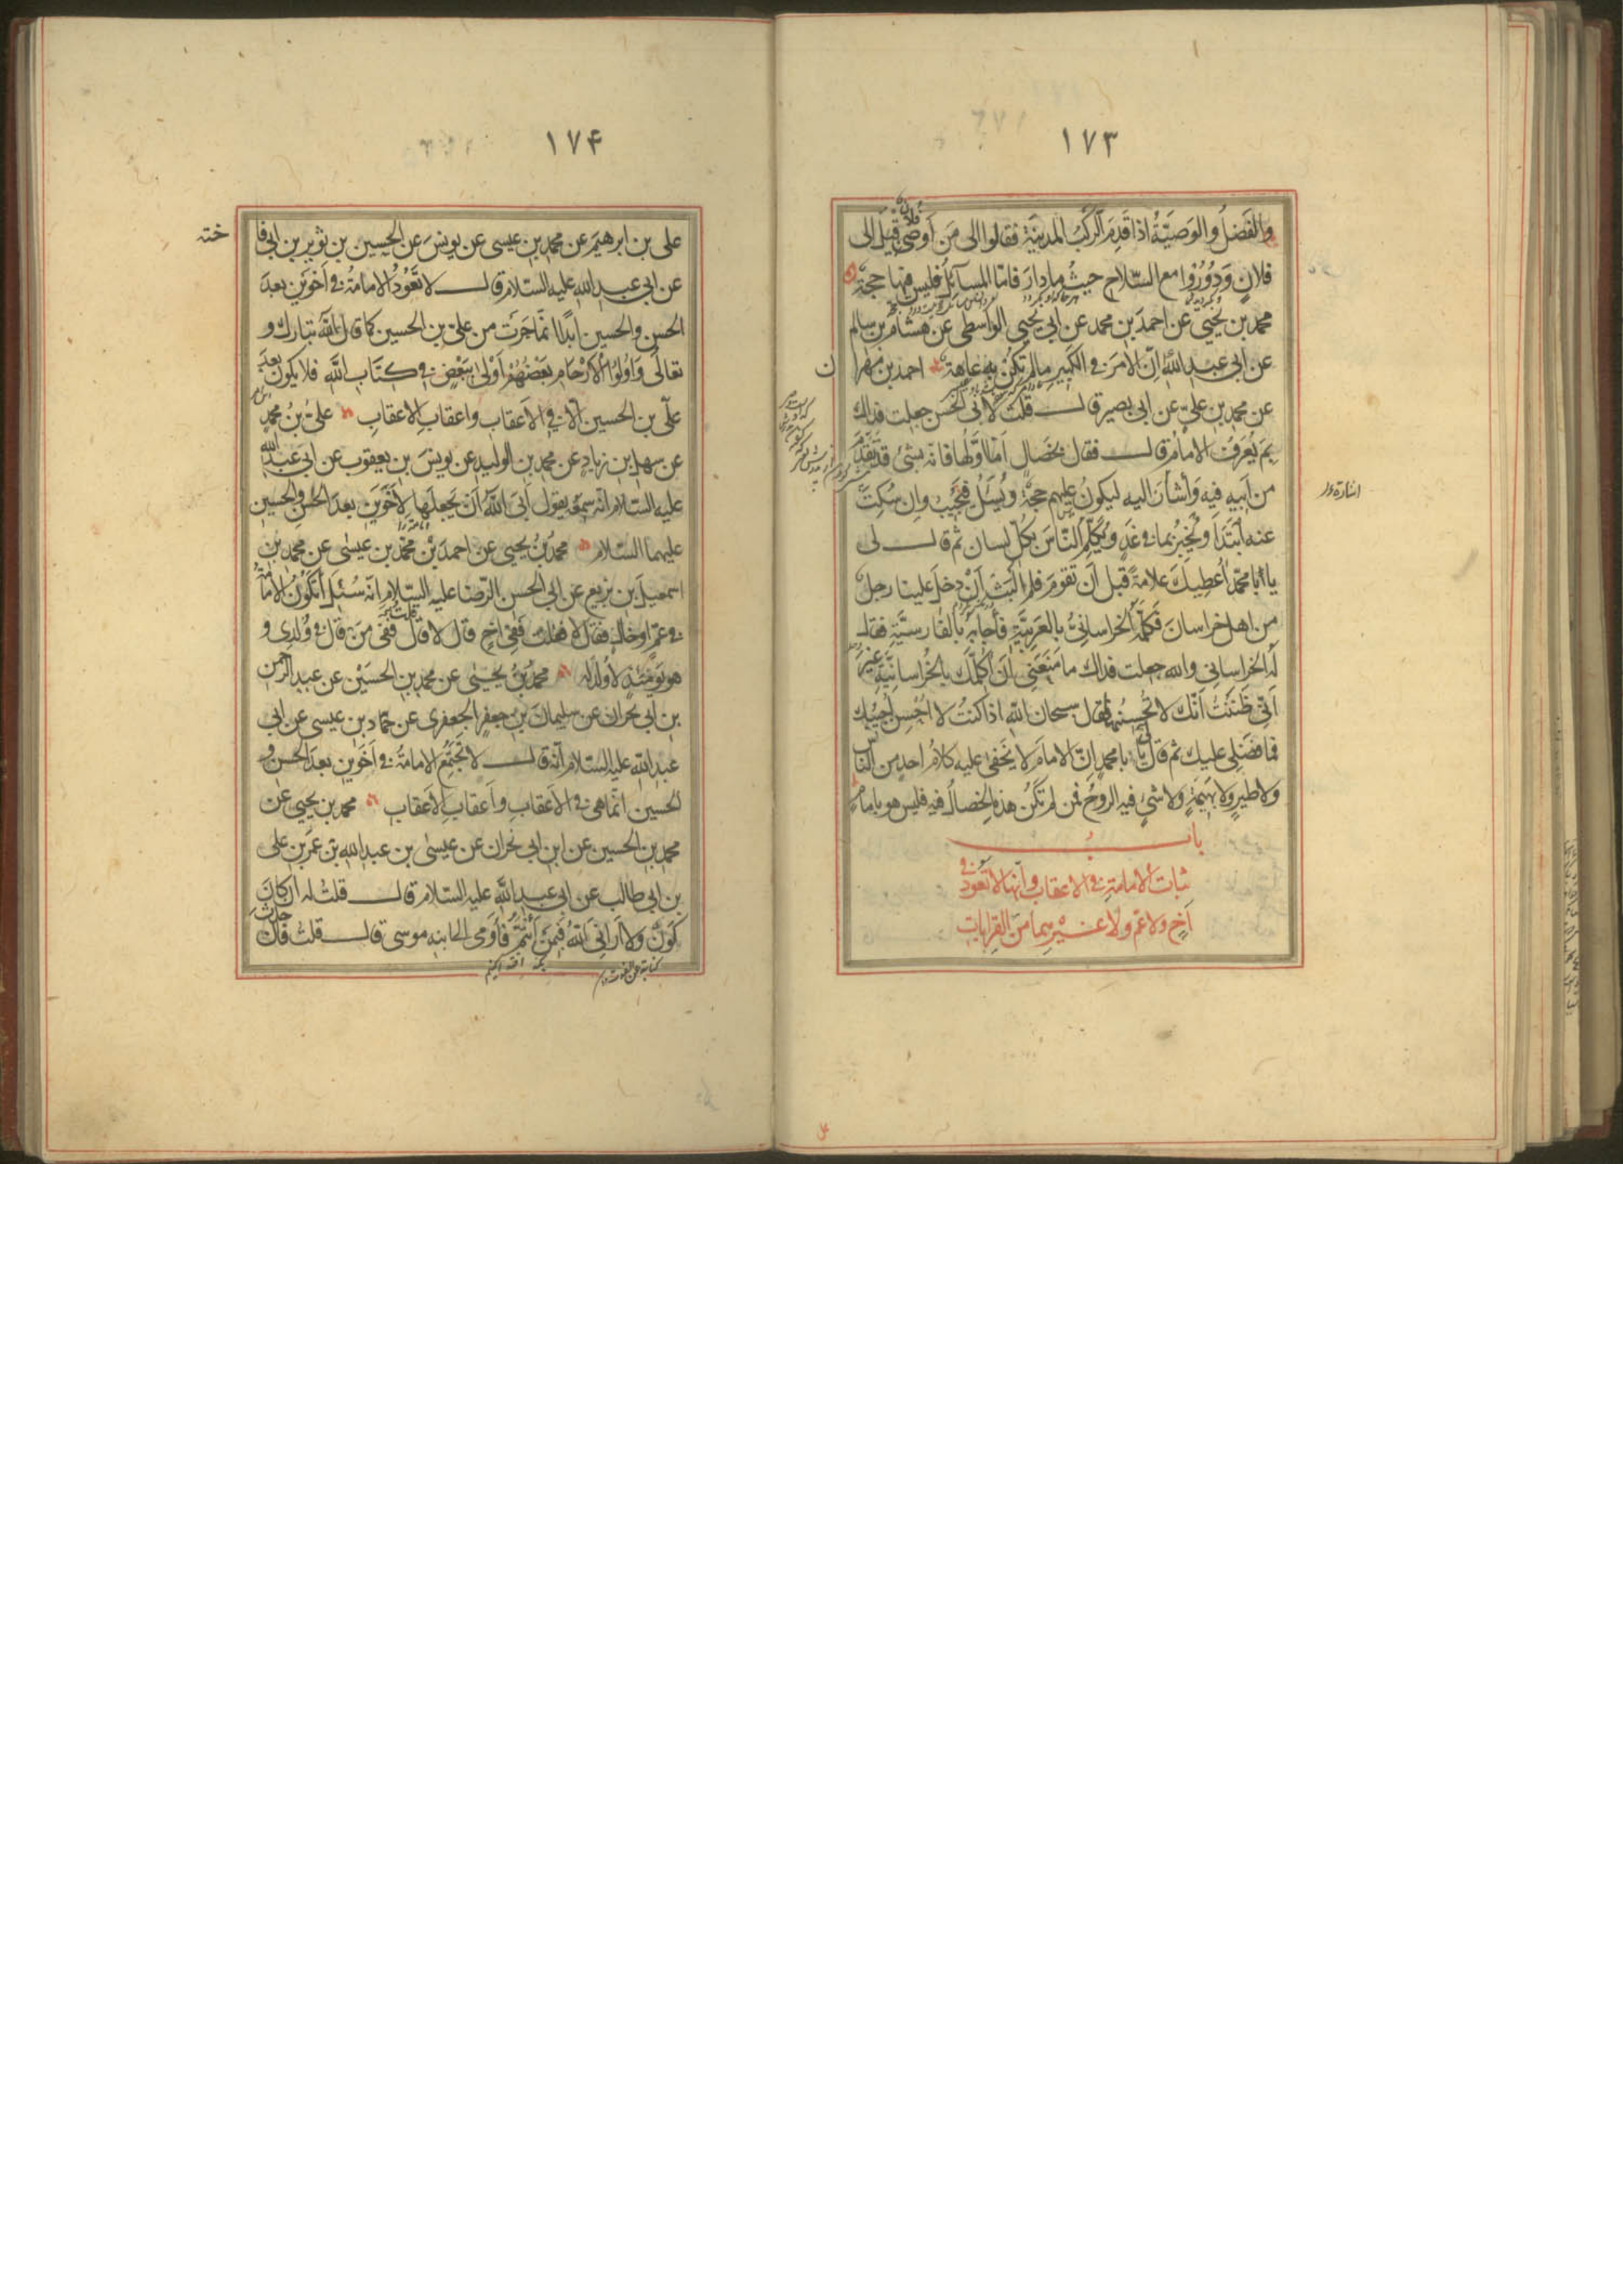 ١٧٣
والفَضلُ والوَصيّةُ اذا قَدِمَ الرَكبُ المدينَةَ فقالوا الى مَن اَوصٰى فُلانٌ قيلَ الى
فلانٍ وَدُورُوا مع السّلاحِ حيثُ ما دارَ فامّا المسآئِلُ فليس فيها حجّة
محمد بن يَحيٰى عن احمدَ بن محمد عن ابى يَحيى الواسطى عن هشام بن سالم
عن ابى عبد اللهِ اِنّ الامرَ فى الكبيرِ مالم تكُن به عاهة احمد بن مهرا
ن
عن محمد بن علىٍّ عن ابى بصير قال قلتُ لابى الحسن جعلت فداك
بِمَ يُعرَفُ الامامُ قال فقال بخصال اَمّا اوّلُها فانّه بشئ قد تقدّمَ
من اَبيهِ فيهِ وَاشارَ اليه ليكونَ عليهم حجّةً ويُسئَلُ فيُجيبُ وان سُكِتَ
اشارة
عنه اِبتَدَا ويُخبِرُ بما فى غَدٍ ويُكلّم النّاسَ بكلّ لسان ثم قال لى
يا ابا محمّد اُعطيكَ علامةً قبل اَن تقومَ فلم اَلبَث اَن دخل علينا رجلٌ
من اهل خراسان فكلّمَهُ الخراسانىُّ بالعربيّةِ فأجابَه بالفارسيّةِ فقال
لَه الخراسانى والله جعلت فداك ما مَنَعَنى اَن اُكلّمَك بالخُراسانيّةِ غير
اَنّى ظَنَنتُ اَنّك لا تُحسِنُها فقال سبحان الله اذا كنتُ لا اُحسِن اُجيبُك
فما فضلى عليك ثم قال لى يا ابا محمدٍ اِنّ الامامَ لا يَخفى عليه كلامُ احدٍ من النّاس
ولا طيرٍ ولا بهيمةٍ ولا شئٍ فيه الروحُ فمن لم تكُن هذه الخصالُ فيه فليس هو بامام
باب
ثبات الامامةِ فى الاعقاب وانّها لا تعود فى
اَخٍ ولا عمّ ولا غيرهما من القرابات
١٧۴
على بن ابرهيمَ عن محمد بن عيسى عن يونسَ عن الحسين بن ثوير بن ابى فا
خته
عن ابى عبد الله عليه السّلام قال لا تَعُودُ الامامةُ فى اَخوَين بعدَ
الحسن والحسين اَبدًا اِنّما جَرَت من علىّ بن الحسين كما قال الله تبارك و
تعالٰى وَاُولُوا الاَرْحَامِ بَعْضُهُمْ اَوْلٰى بِبَعْضٍ فى كِتَابِ اللهِ فلا يكون بعدَ
علىّ بن الحسين الّا فى الاَعقابِ واعقابِ الاعقابِ علىُّ بنُ محمدٍ
عن سهل بن زيادٍ عن محمد بن الوليد عن يونسَ بن يعقوب عن ابى عبد الله
عليه السّلام انّه سمعَه يقول اَبَى اللهُ اَن يَجعلَها لِاَخَوَين بعدَ الحسن والحسين
عليهما السّلام محمّدُ بنُ يحيى عن احمدَ بْن محمّد بن عيسٰى عن محمد بن
اسمعيلَ بن بزيع عن ابى الحسن الرّضا عليه السّلام انّه سُئِلَ اَتكُونُ الامامةُ
فى عمٍّ او خالٍ فقال لا فقلت فَفى اَخٍ قال لا قلتُ ففى مَن قال فى وُلدِى و
هو يَومَئذٍ لا وُلدَ له محمدُ بنُ يحيٰى عن محمد بن الحسَيْن عن عبد الرحمن
بن ابى نجران عن سليمانَ بن جعفر الجعفرى عن حمّاد بن عيسى عن ابى
عبد الله عليه السّلام اَنّه قال لا تَجتَمِعُ الامامةُ فى اَخَوَين بعدَ الحسن و
الحسين انّما هى فى الاَعقابِ واَعقابِ الاَعقاب محمد بن يحيى عن
محمد بن الحسين عن ابن ابى نجران عن عيسٰى بن عبد الله بن عمرَ بن على
بن ابى طالب عن ابى عبد الله عليه السّلام قال قلتُ له ان كانَ
كَونٌ ولا اَرانى اللهُ فَبِمَن اَئتَمُّ فأَومٰى الى ابنِه موسى قال قلتُ فان حدث